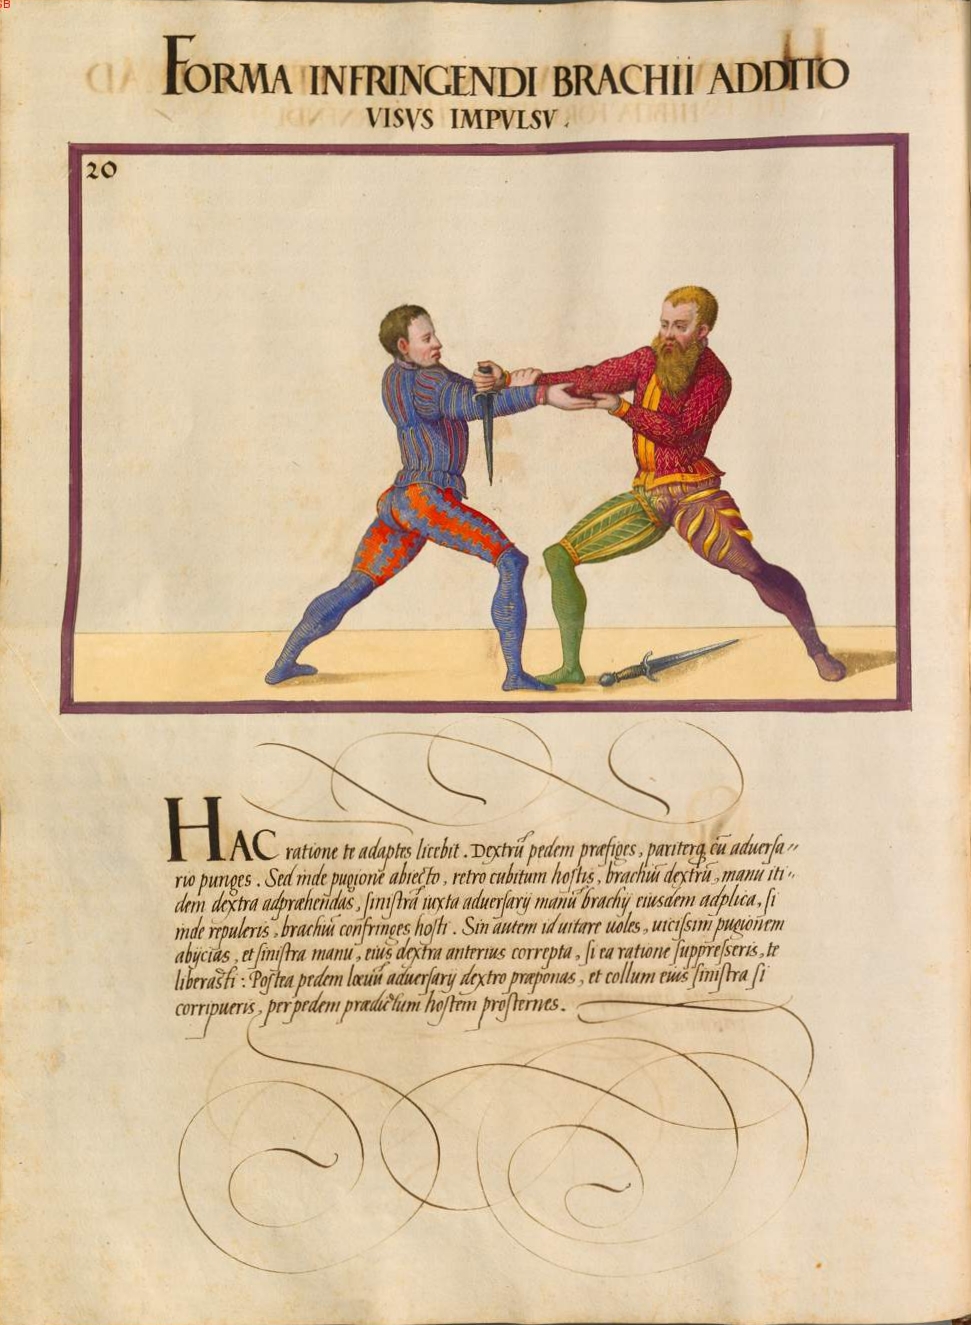 SB
FORMA INFRINGENDI BRACHII ADDITO
VISVS IMPVLSV.
20
HAC ratione te adaptes licebit. Dextrũ pedem præfiges, pariterq cũ aduersa„
rio punges. Sed inde pugione abiecto, retro cubitum hostis, brachiũ dextrũ, manu iti„
dem dextra adpræhendas, sinistrã iuxta aduersarij manũ brachij eiusdem adplica, si
inde repuleris, brachiũ confringes hosti. Sin autem id uitare uoles, uicissim pugionem
abijcias, et sinistra manu, eius dextra anterius correpta, si ea ratione suppresseris, te
liberasti: Postea pedem læuũ aduersarij dextro præponas, et collum eius sinistra si
corripueris, per pedem prædictum hostem prosternes.